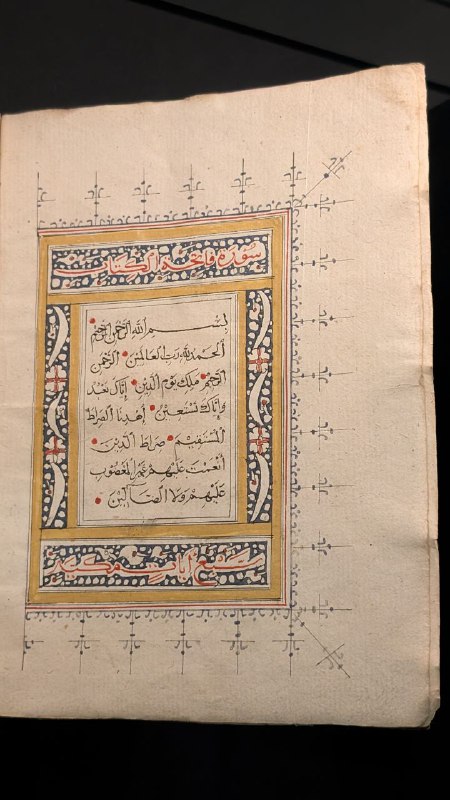 سورة فاتحة الكتاب
بسم الله الرحمن الرحيم
الحمد لله رب العالمين الرحمن
الرحيم ملك يوم الدين إياك نعبد
وإياك نستعين اهدنا الصراط
المستقيم صراط الذين
أنعمت عليهم غير المغضوب
عليهم ولا الضالين
سبع آيات مكية